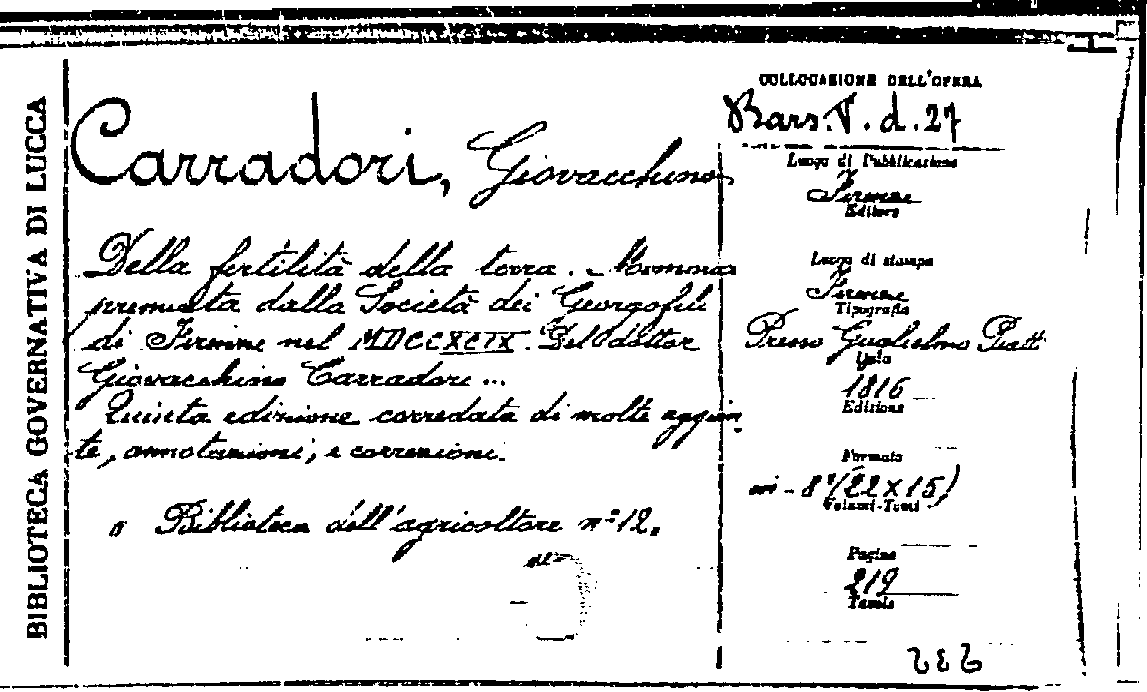 BIBLIOTECA GOVERNATIVA DI LUCCA
Carradori, Giovacchino
Della fertilità della terra. - Memoria
premiata dalla Società dei Georgofili
di Firenze nel MDCCXCIX. Del dottor
Giovacchino Carradori ...
Quinta edizione corredata di molte aggiun
te, annotazioni, e correzioni.
Biblioteca dell'agricoltore n° 12.
COLLOCAZIONE DELL'OPERA
Bars. V. d. 27
Luogo di Pubblicazione
Firenze
Editore
Luogo di stampa
Firenze
Tipografia
Presso Guglielmo Piatti
1816
Edizione
Formato
8° (22 X 15)
Volumi-Tomi
Pagine
219
Tavole